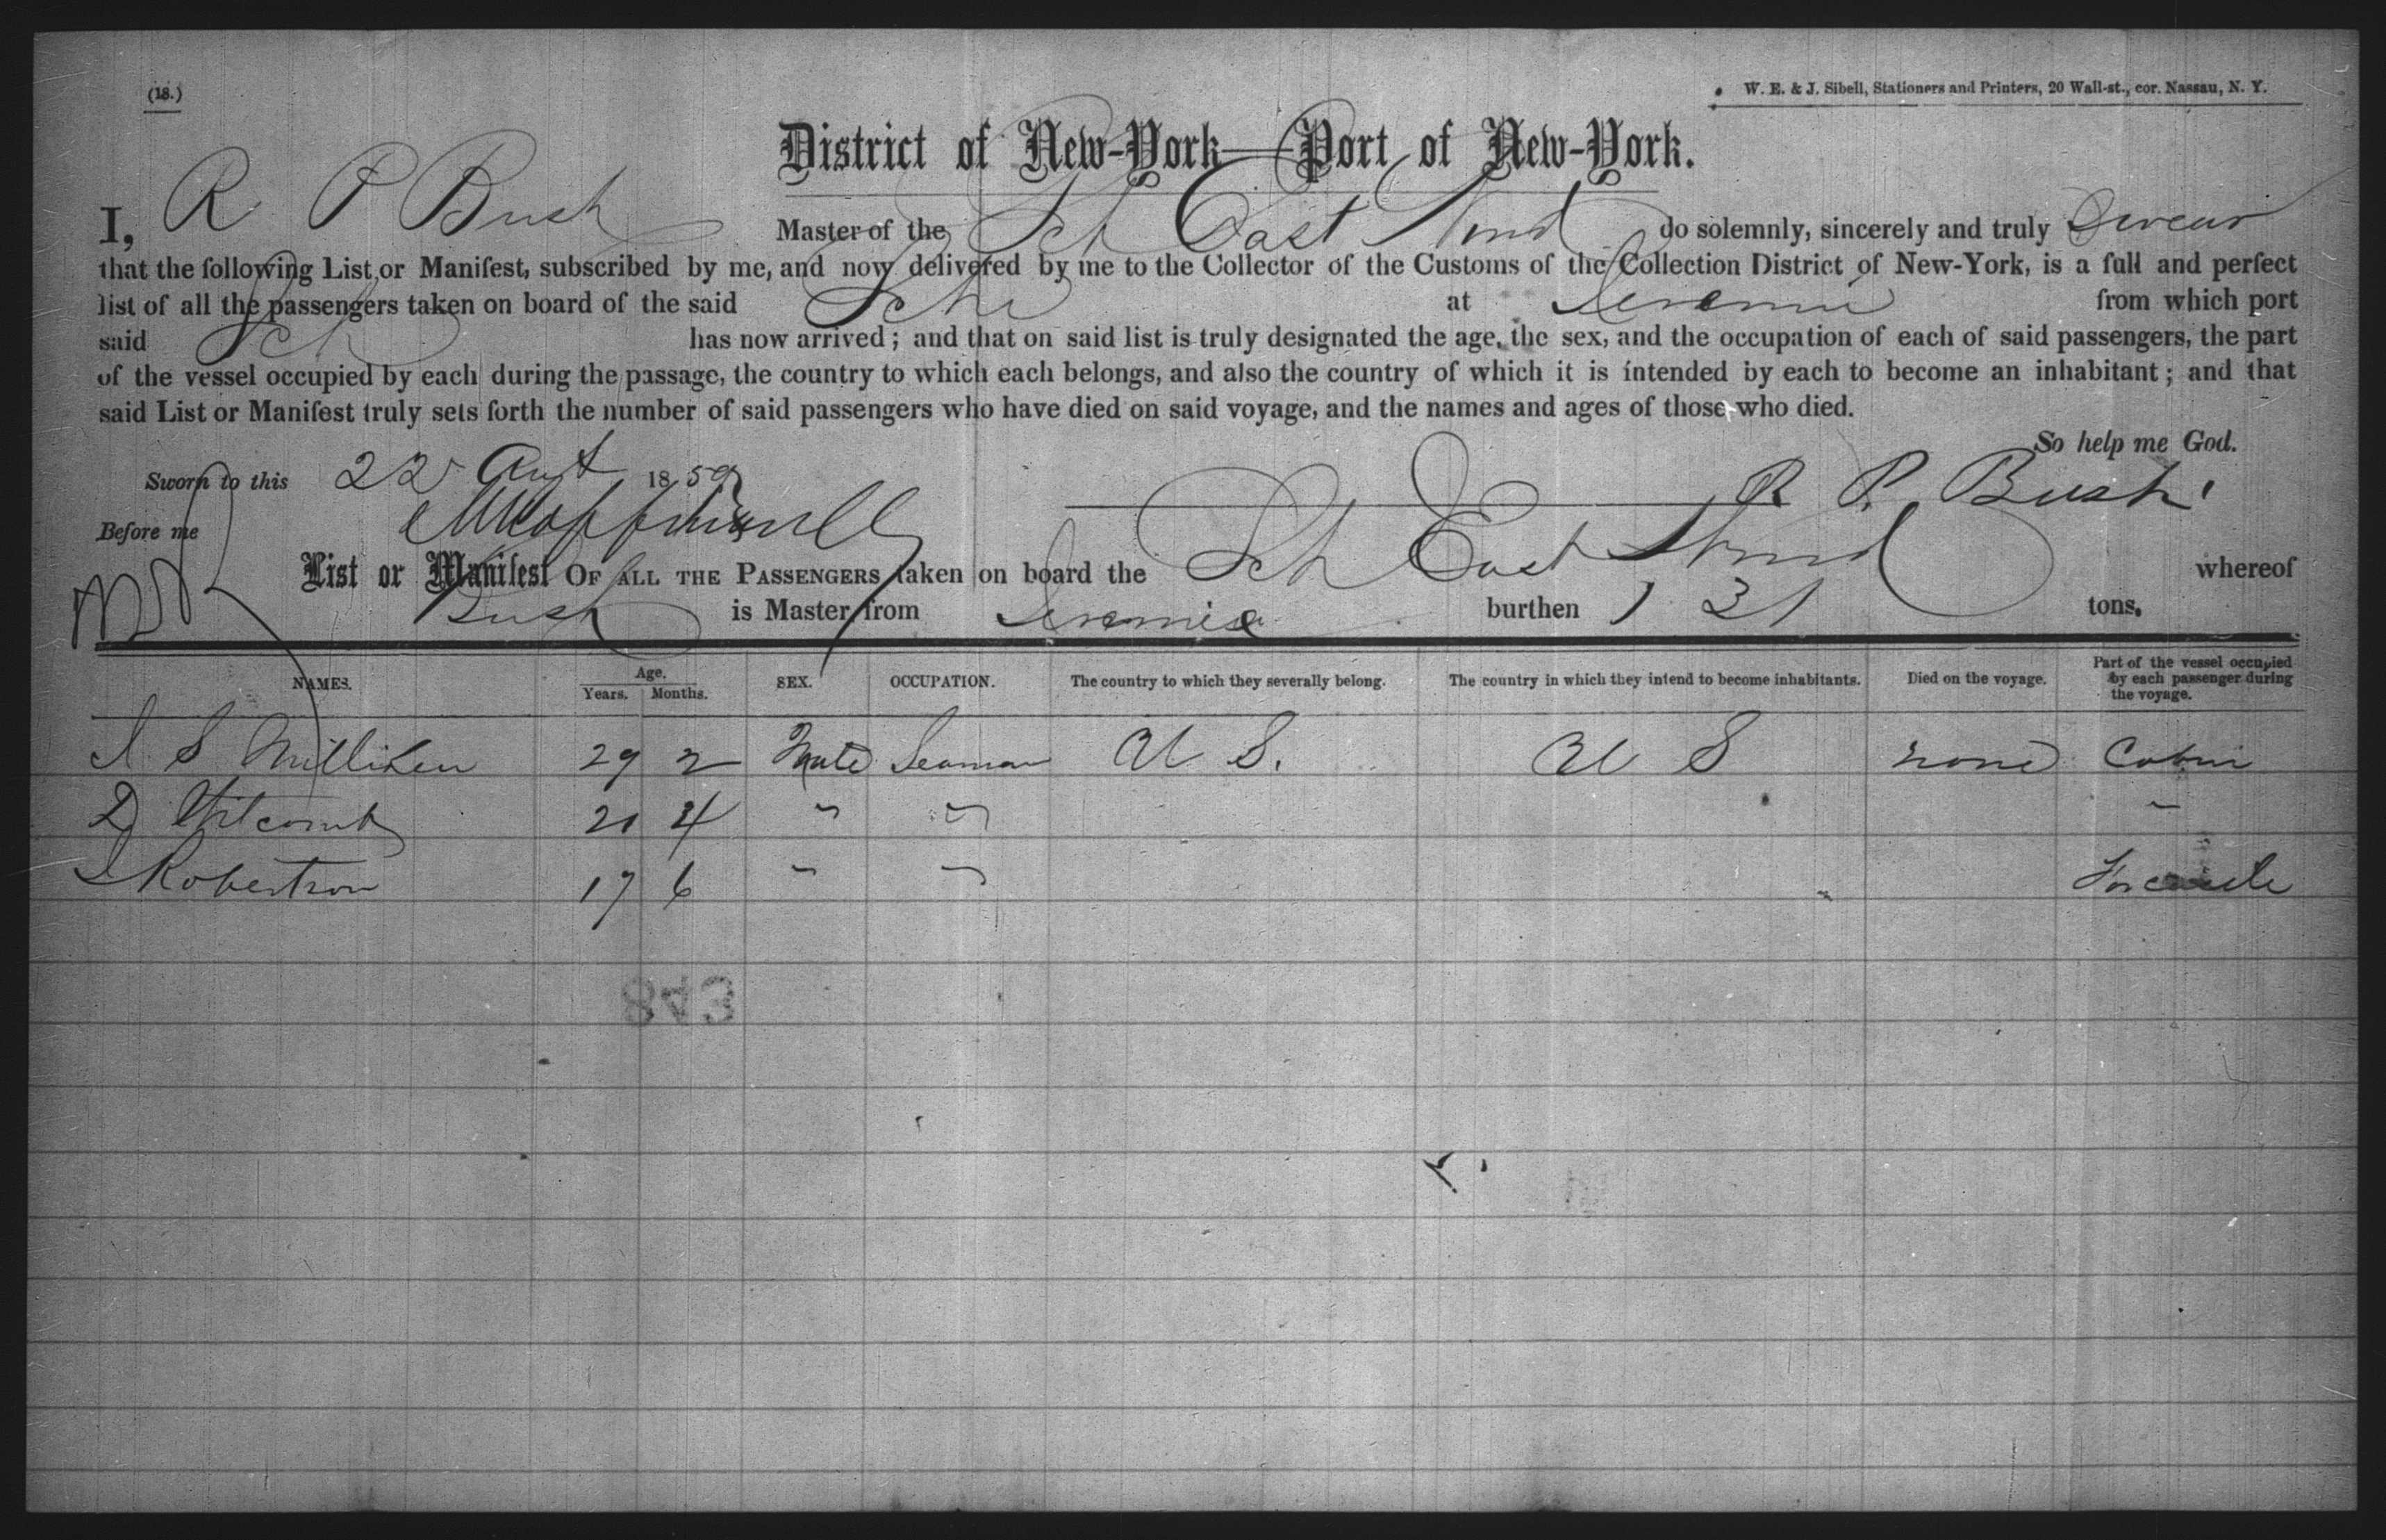 (18.)
W. E. & J. Sibell, Stationers and Printers, 20 Wall-st., cor. Nassau, N. Y.
District of New-York—Port of New-York.
I, R P Bush Master of the Sch East Wind do solemnly, sincerely and truly Swear
that the following List or Manifest, subscribed by me, and now delivered by me to the Collector of the Customs of the Collection District of New-York, is a full and perfect
list of all the passengers taken on board of the said Schr at Jeremie from which port
said Sch has now arrived; and that on said list is truly designated the age, the sex, and the occupation of each of said passengers, the part
of the vessel occupied by each during the passage, the country to which each belongs, and also the country of which it is intended by each to become an inhabitant; and that
said List or Manifest truly sets forth the number of said passengers who have died on said voyage, and the names and ages of those who died.
So help me God.
Sworn to this 22 Augt 1859 R P. Bush
Before me
List or Manifest OF ALL THE PASSENGERS taken on board the Sch East Wind whereof
Bush is Master, from Jeremie burthen 131 tons.
NAMES. Age. Years. Months. SEX. OCCUPATION. The country to which they severally belong. The country in which they intend to become inhabitants. Died on the voyage. Part of the vessel occupied by each passenger during the voyage.
S Milliken 29 2 Male Seaman U S. U S none Cabin
D Titcomb 21 4 " " "
Robertson 17 6 " " Forcastle
843